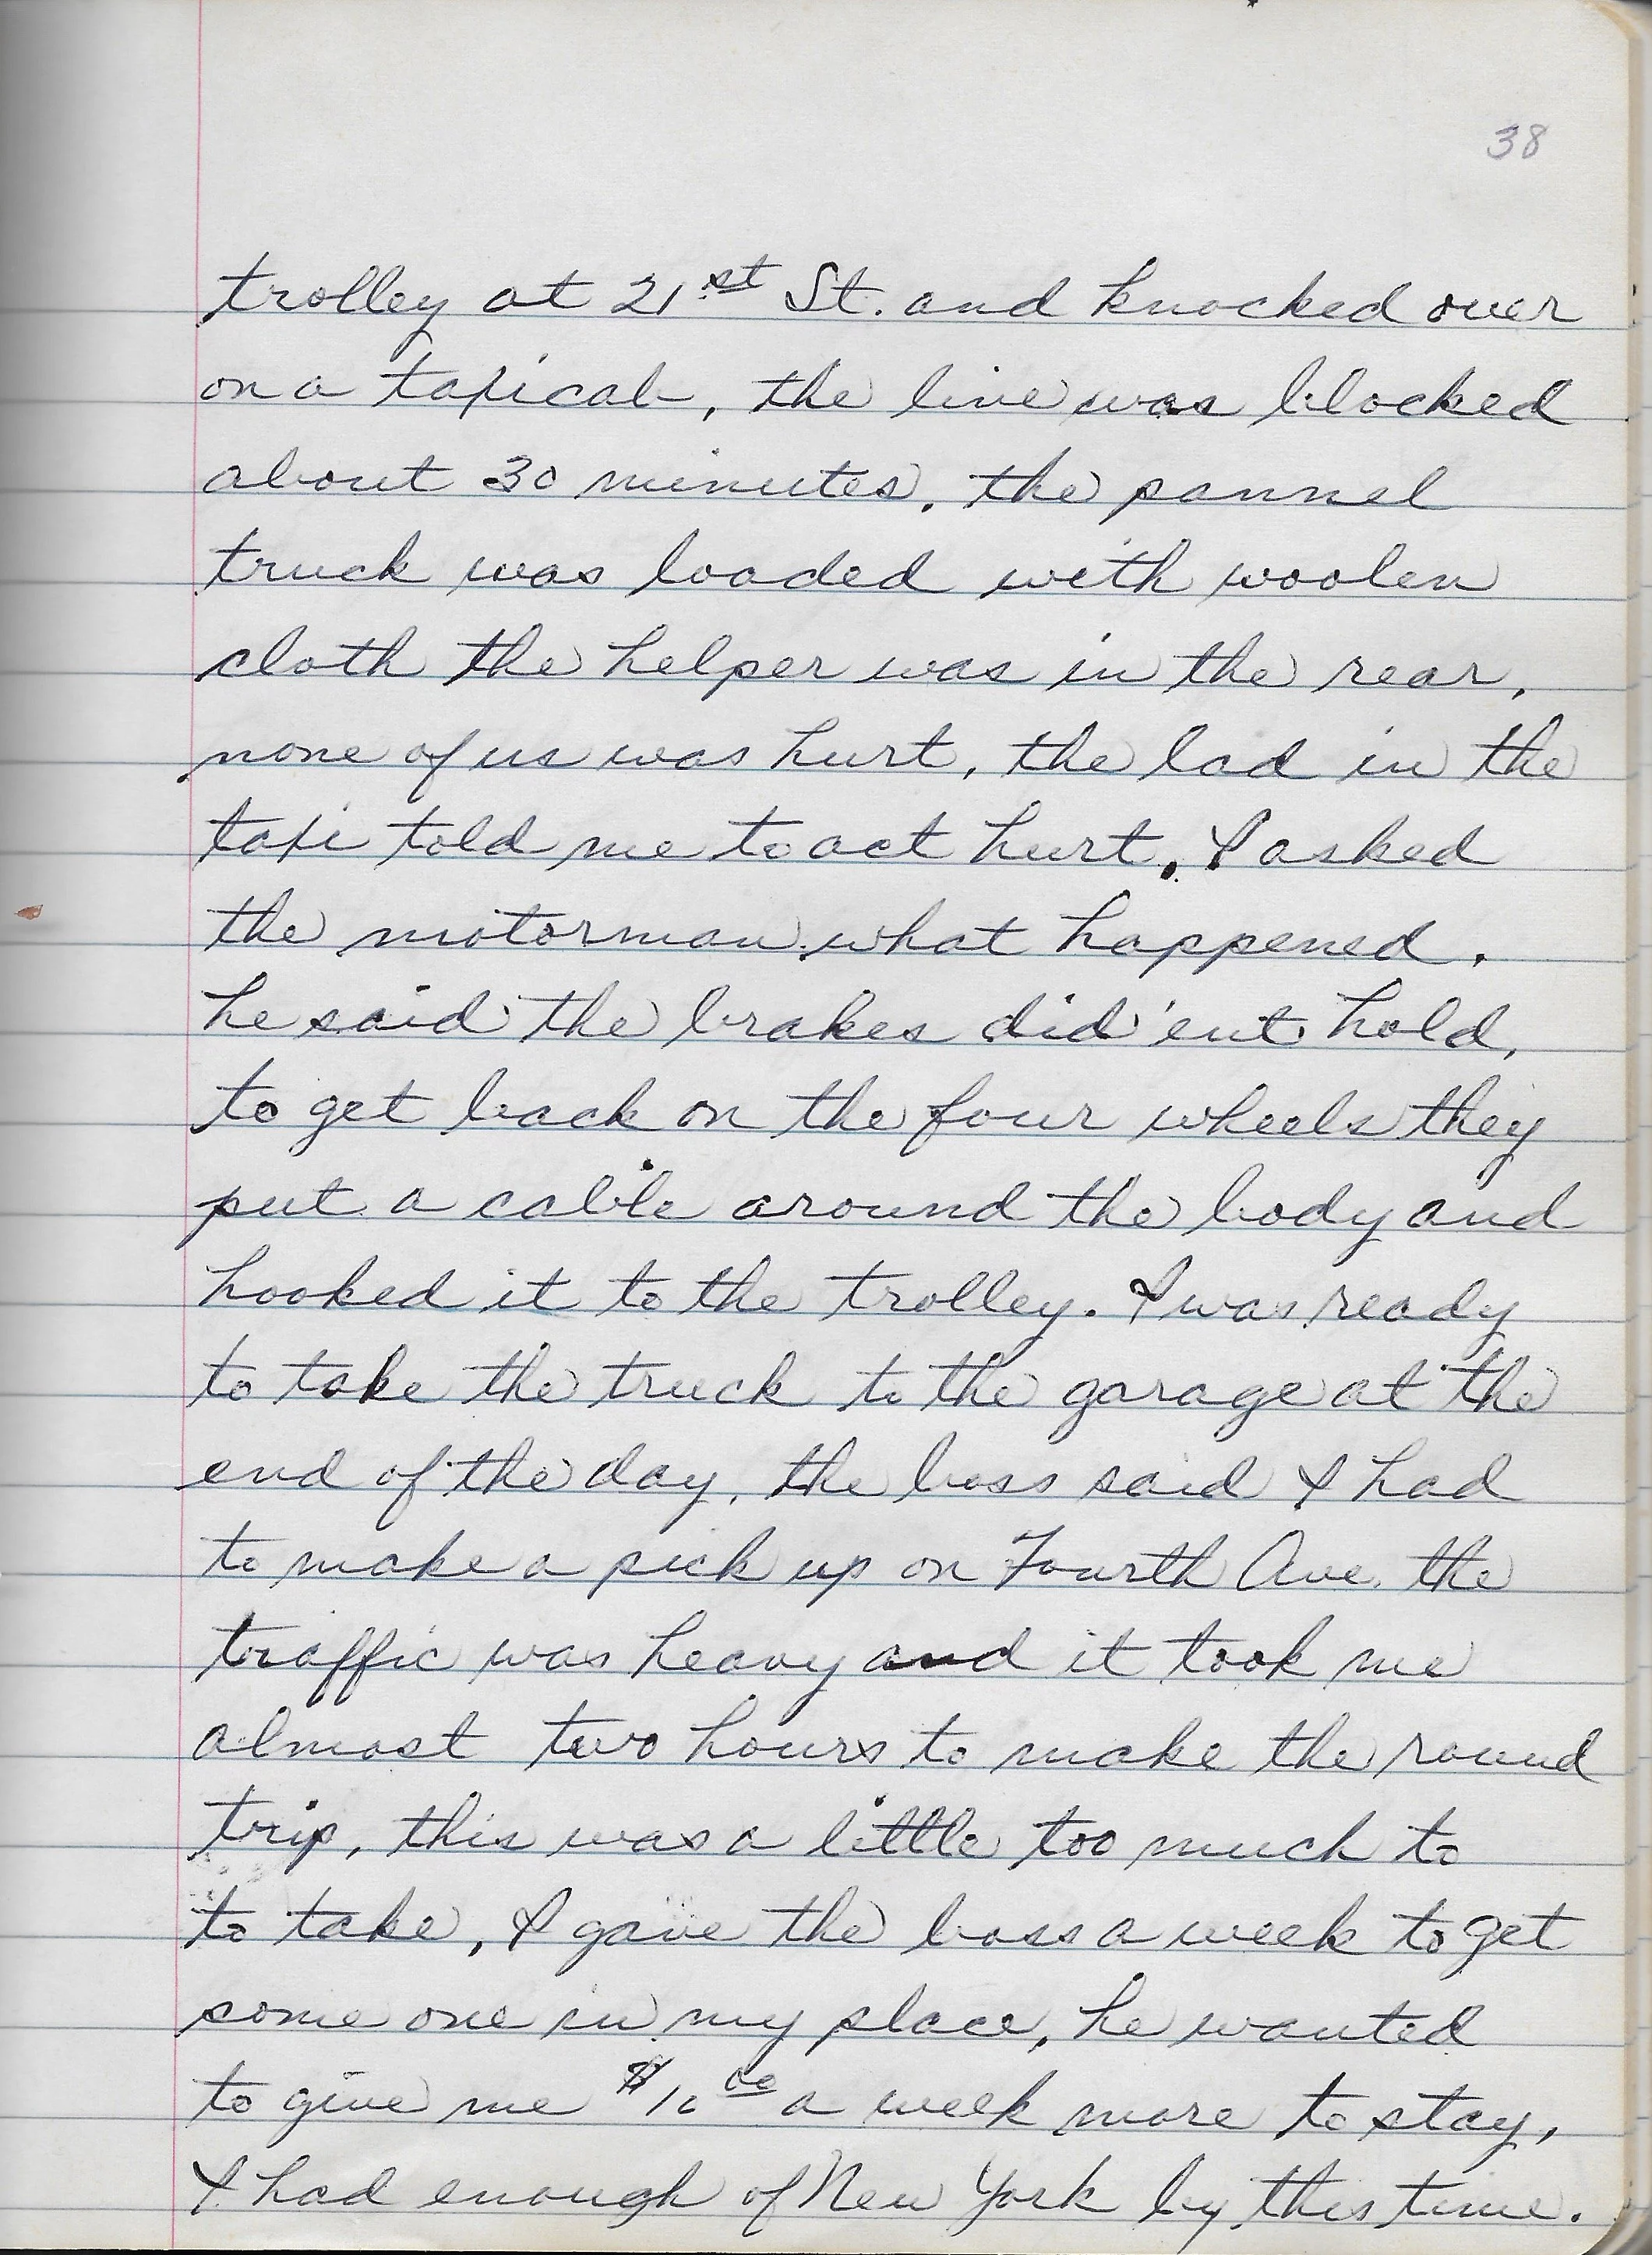 38
trolley at 21st St. and knocked over
on a taxicab, the line was blocked
about 30 minutes. the pannel
truck was loaded with woolen
cloth the helper was in the rear,
none of us was hurt, the lad in the
taxi told me to act hurt. I asked
the motorman what happened.
he said the brakes did'ent hold,
to get back on the four wheels they
put a cable around the body and
hooked it to the trolley. I was ready
to take the truck to the garage at the
end of the day, the boss said I had
to make a pick up on Fourth Ave. the
traffic was heavy and it took me
almost two hours to make the round
trip, this was a little too much to
to take, I gave the boss a week to get
some one in my place, he wanted
to give me $10.00 a week more to stay,
I had enough of New York by this time.